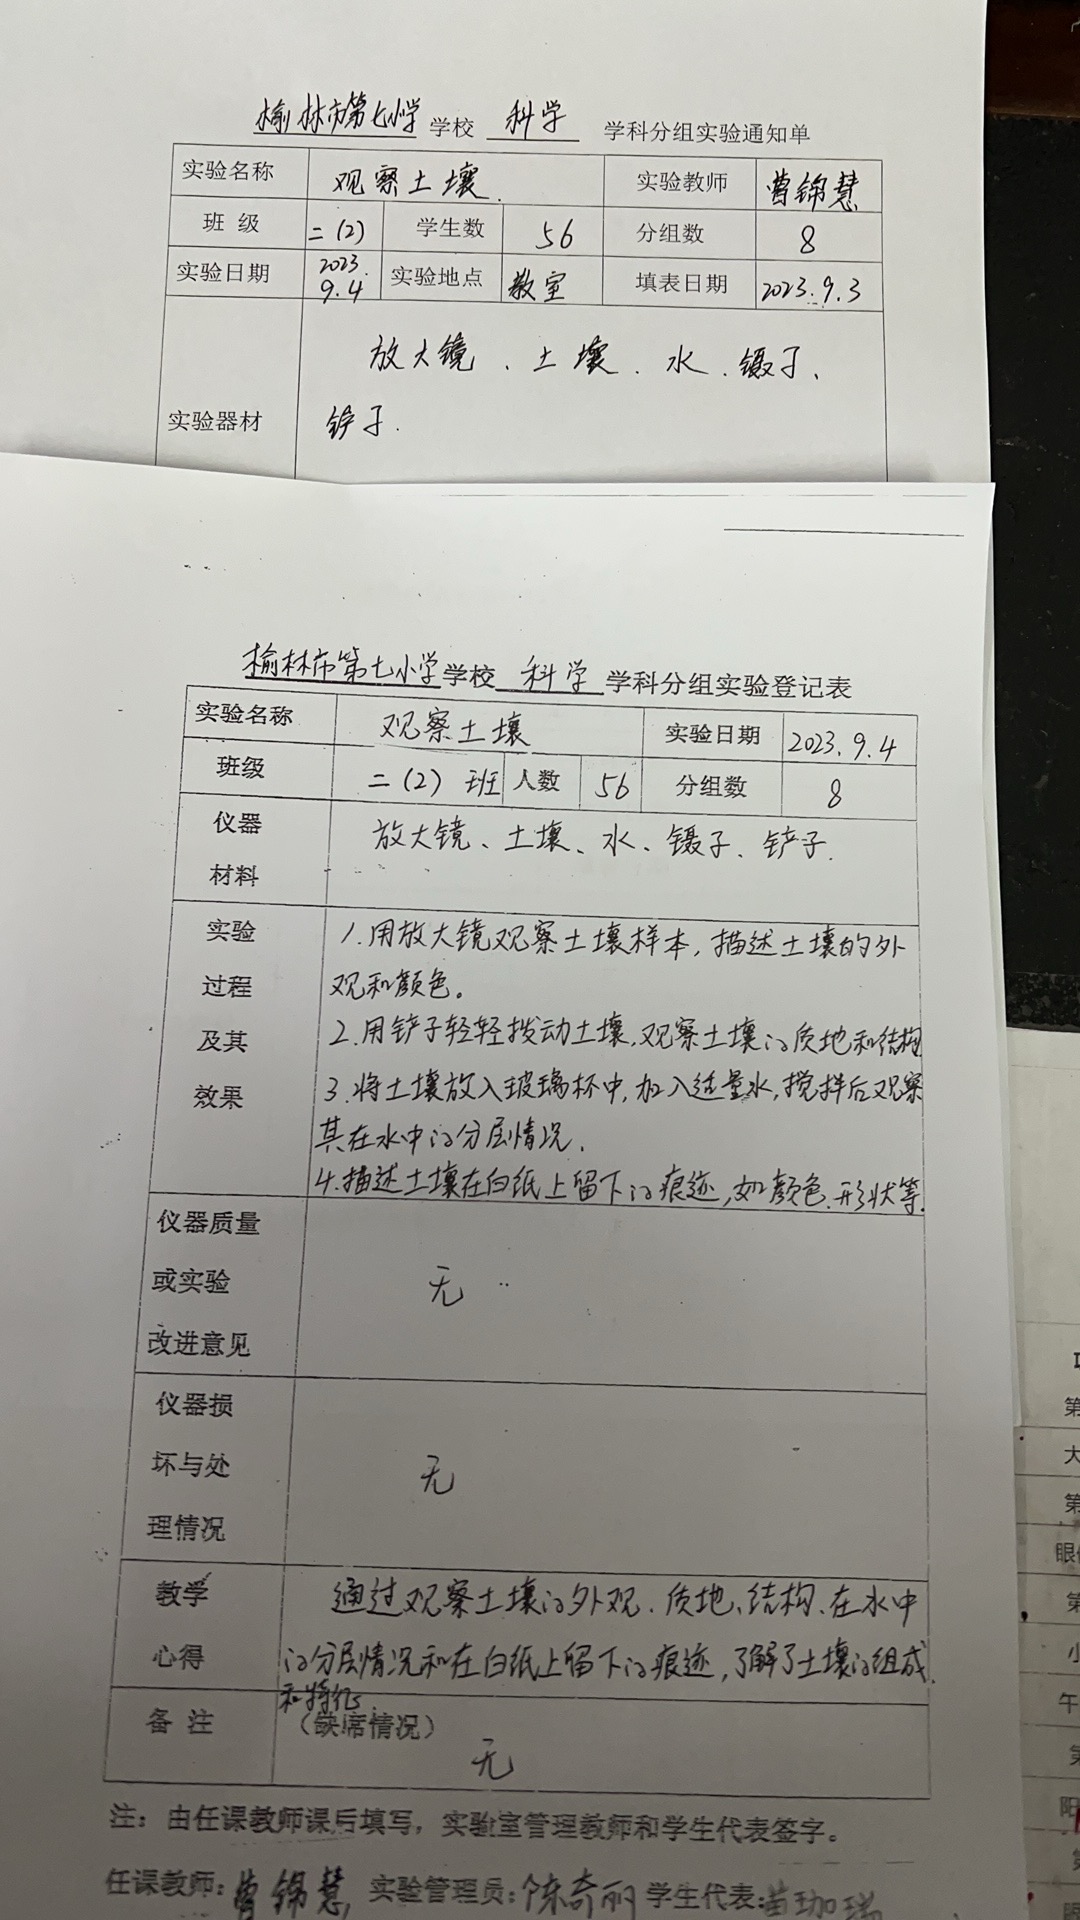 榆林市第七小学 学校 科学 学科分组实验通知单
实验名称 观察土壤. 实验教师 曹锦慧
班 级 二(2) 学生数 56 分组数 8
实验日期 2023.9.4 实验地点 教室 填表日期 2023.9.3
放大镜、土壤、水、镊子、
实验器材 铲子.
榆林市第七小学学校 科学 学科分组实验登记表
实验名称 观察土壤 实验日期 2023.9.4
班级 二(2) 班 人数 56 分组数 8
仪器 放大镜、土壤、水、镊子、铲子.
材料
实验 1.用放大镜观察土壤样本,描述土壤的外
过程 观和颜色。
及其 2.用铲子轻轻拨动土壤,观察土壤的质地和结构
效果 3.将土壤放入玻璃杯中,加入适量水,搅拌后观察
其在水中的分层情况.
4.描述土壤在白纸上留下的痕迹,如颜色.形状等.
仪器质量
或实验 无
改进意见
仪器损
坏与处 无
理情况
教学 通过观察土壤的外观、质地、结构、在水中
心得 的分层情况和在白纸上留下的痕迹,了解了土壤的组成
和特征.
备 注 (缺席情况)
无
注:由任课教师课后填写,实验室管理教师和学生代表签字。
任课教师:曹锦慧 实验管理员:陈奇丽 学生代表:苗珈瑞
第
大
第
眼
第
小
午
第
阳